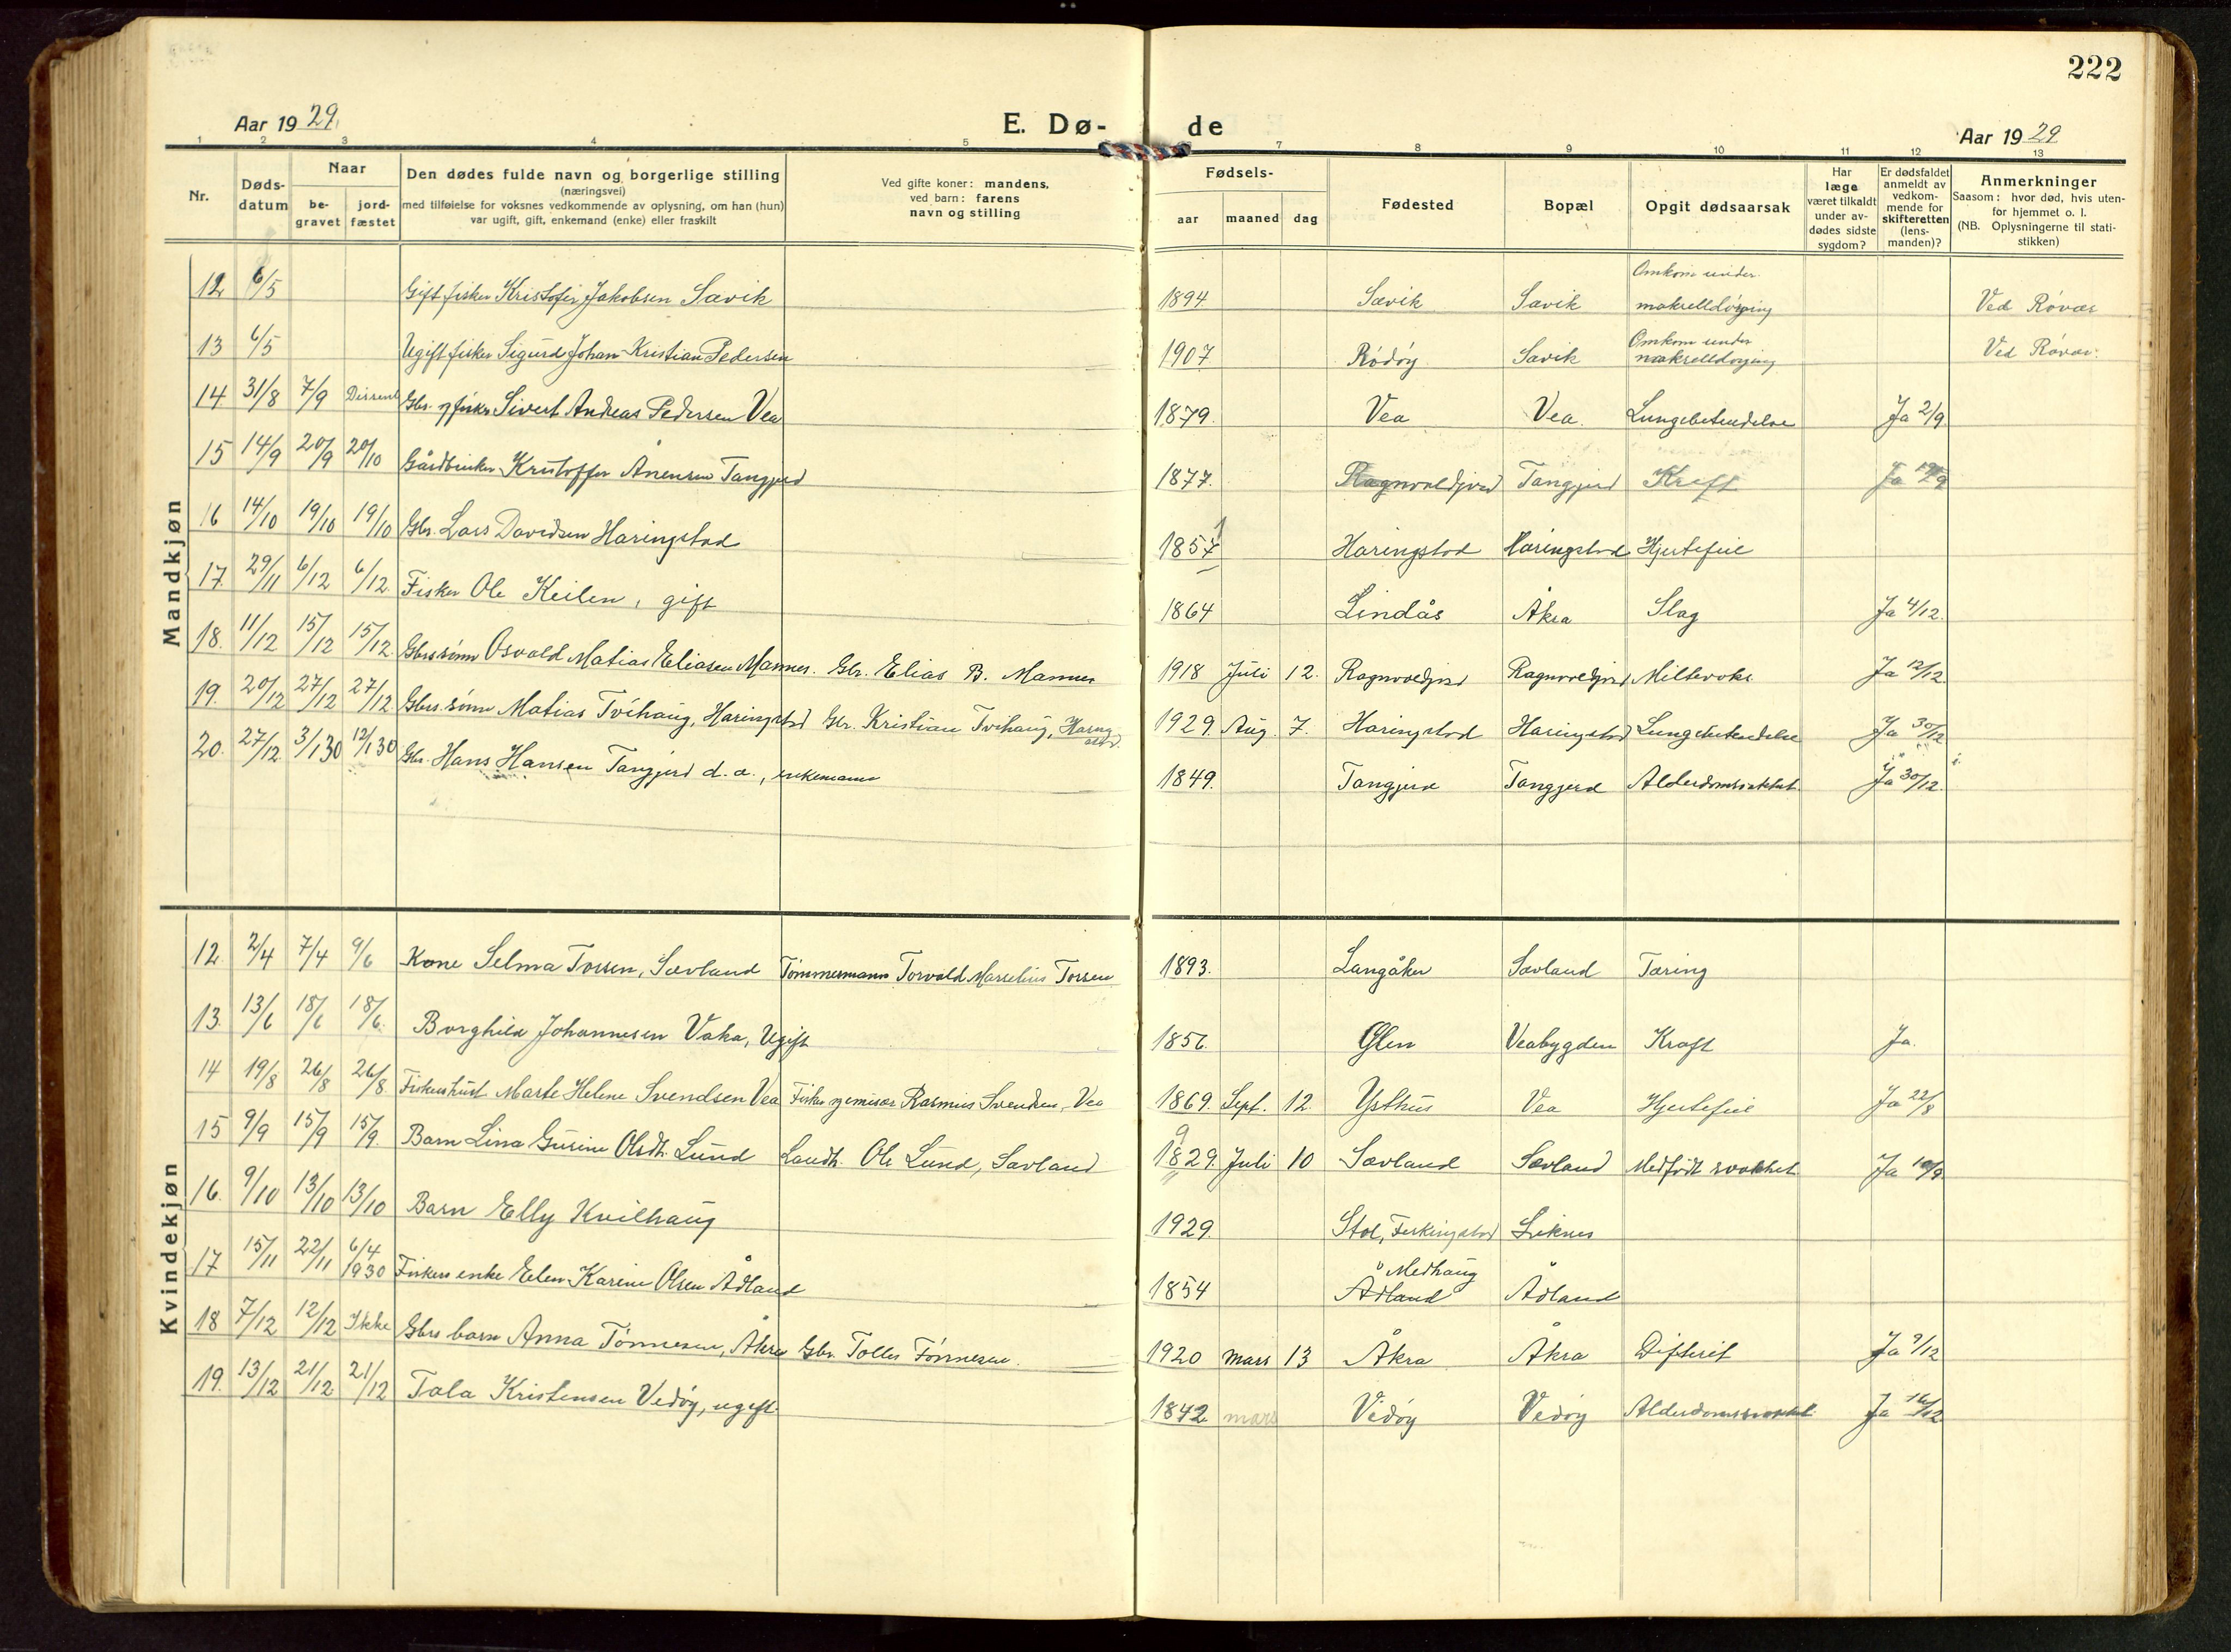 222
Aar 1929.
E. Dø-
de
Aar 1929
1 2 3 4 5 7 8 9 10 11 12 13
Nr.
Døds-
datum
Naar
be-
gravet
jord-
fæstet
Den dødes fulde navn og borgerlige stilling
(næringsvei)
med tilføielse for voksnes vedkommende av oplysning, om han (hun)
var ugift, gift, enkemand (enke) eller fraskilt
Ved gifte koner: mandens,
ved barn: farens
navn og stilling
Fødsels-
aar
maaned
dag
Fødested
Bopæl
Opgit dødsaarsak
Har
læge
været tilkaldt
under av-
dødes sidste
sygdom?
Er dødsfaldet
anmeldt av
vedkom-
mende for
skifteretten
(lens-
manden)?
Anmerkninger
Saasom: hvor død, hvis uten-
for hjemmet o. l.
(NB. Oplysningerne til stati-
stikken)
Mandkjøn
12 6/5 Gift fisker Kristofer Jakobsen Sævik 1894 Sævik Sævik Omkom under makrelldorging Ved Røvær
13 6/5 Ugift fisker Sigurd Johan Kristian Pedersen 1907 Rødøy Sævik Omkom under makrelldorging Ved Røvær.
14 31/8 7/9 Gbr. og fisker Sivert Andreas Pedersen Vea 1879. Vea Vea. Lungebetendelse Ja 2/9
15 14/9 20/9 20/10 Gårdbruker Kristoffer Anensen Tangjerd 1877. Ragnvaldjord Tangjerd Kreft Ja
16 14/10 19/10 19/10 Gbr. Lars Davidsen Haringstad 1857 1 Haringstad Haringstad Hjertefeil
17. 29/11 6/12 6/12. Fisker Ole Keilen, gift 1864 Lindås Åkra Slag Ja 4/12.
18. 11/12 15/12 15/12. Gbrs sønn Osvald Matias Eliasen Mannes. Gbr. Elias B. Mannes 1918 Juli 12. Ragnvaldjord Ragnvaldjord Miltevoks. Ja 12/12
19. 20/12 27/12 27/12. Gbrs. sønn Matias Tvihaug, Haringstad Gbr. Kristian Tvihaug, Haringstad. 1929. Aug. 7. Haringstad Haringstad Lungebetendelse Ja 30/12
20. 27/12. 3/1 30 12/1 30 Gbr. Hans Hansen Tangjerd d. a., enkemann 1849. Tangjerd Tangjerd Alderdomssvakhet Ja 30/12.
Kvindekjøn
12. 2/4 7/4 9/6 Kone Selma Torsen, Sævland Tømmermann Torvald Marselius Torsen 1893. Langåker Sævland Tæring
13. 13/6 18/6 18/6. Borghild Johannesen Vaka, Ugift 1856. Glen Veabygden Kræft Ja.
14 19/8 26/8 26/8 Fiskers hust. Marte Helene Svendsen Vea Fisker og emissær Rasmus Svendsen, Vea 1869. Sept. 12. Ysthus Vea Hjertefeil Ja 22/8
15 9/9 15/9 15/9. Barn Lina Gurine Olsdt. Lund Landh. Ole Lund, Sævland 9 1829. Juli 10 Sævland Sævland Medfødt svakhet Ja
16. 9/10 13/10 13/10 Barn Elly Kvilhaug 1929. Stol, Ferkingstad Liknes
17 15/11 22/11 6/4 1930 Fiskers enke Elen Karine Olsen Ådland 1854 Medhaug Ådland Ådland
18 7/12 12/12 Ikke Gbrs barn Anna Tønnesen, Åkra Gbr. Tollef Tønnesen. 1920 mars 13 Åkra Åkra Difterit Ja 9/12
19. 13/12 21/12 21/12 Tala Kristensen Vedøy, ugift. 1842 mars Vedøy Vedøy Alderdomssvakhet. Ja 16/12